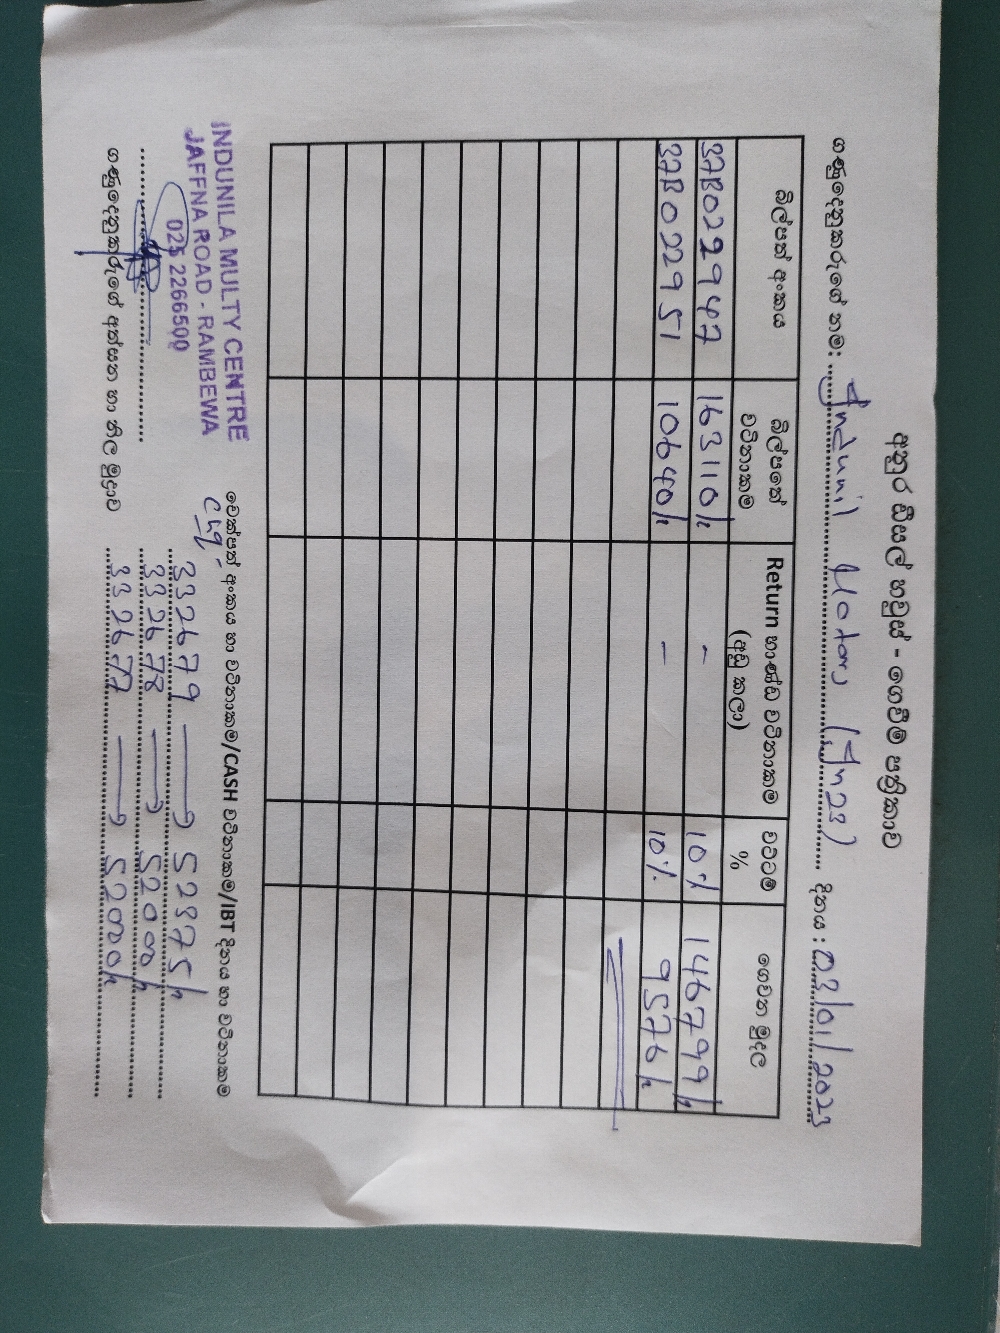 අනුර ඩීසල් හවුස් - ගෙවීම් පත්‍රිකාව
ගණුදෙනුකරුගේ නම: Indunil Motors (In23) දිනය : 03/01/2023
බිල්පත් අංකය බිල්පතේ වටිනාකම Return භාණ්ඩ වටිනාකම (අඩු කලා) වට්ටම් % ගෙවන මුදල
37B022947 163110/= - 10% 146799/=
37B022951 10640/= - 10% 9576/=
චෙක්පත් අංකය හා වටිනාකම/CASH වටිනාකම/IBT දිනය හා වටිනාකම
chq -
332679 → 52375/=
332678 → 52000/=
332677 → 52000/=
INDUNILA MULTY CENTRE
JAFFNA ROAD - RAMBEWA
025 2266500
ගණුදෙනුකරුගේ අත්සන හා නිල මුද්‍රාව